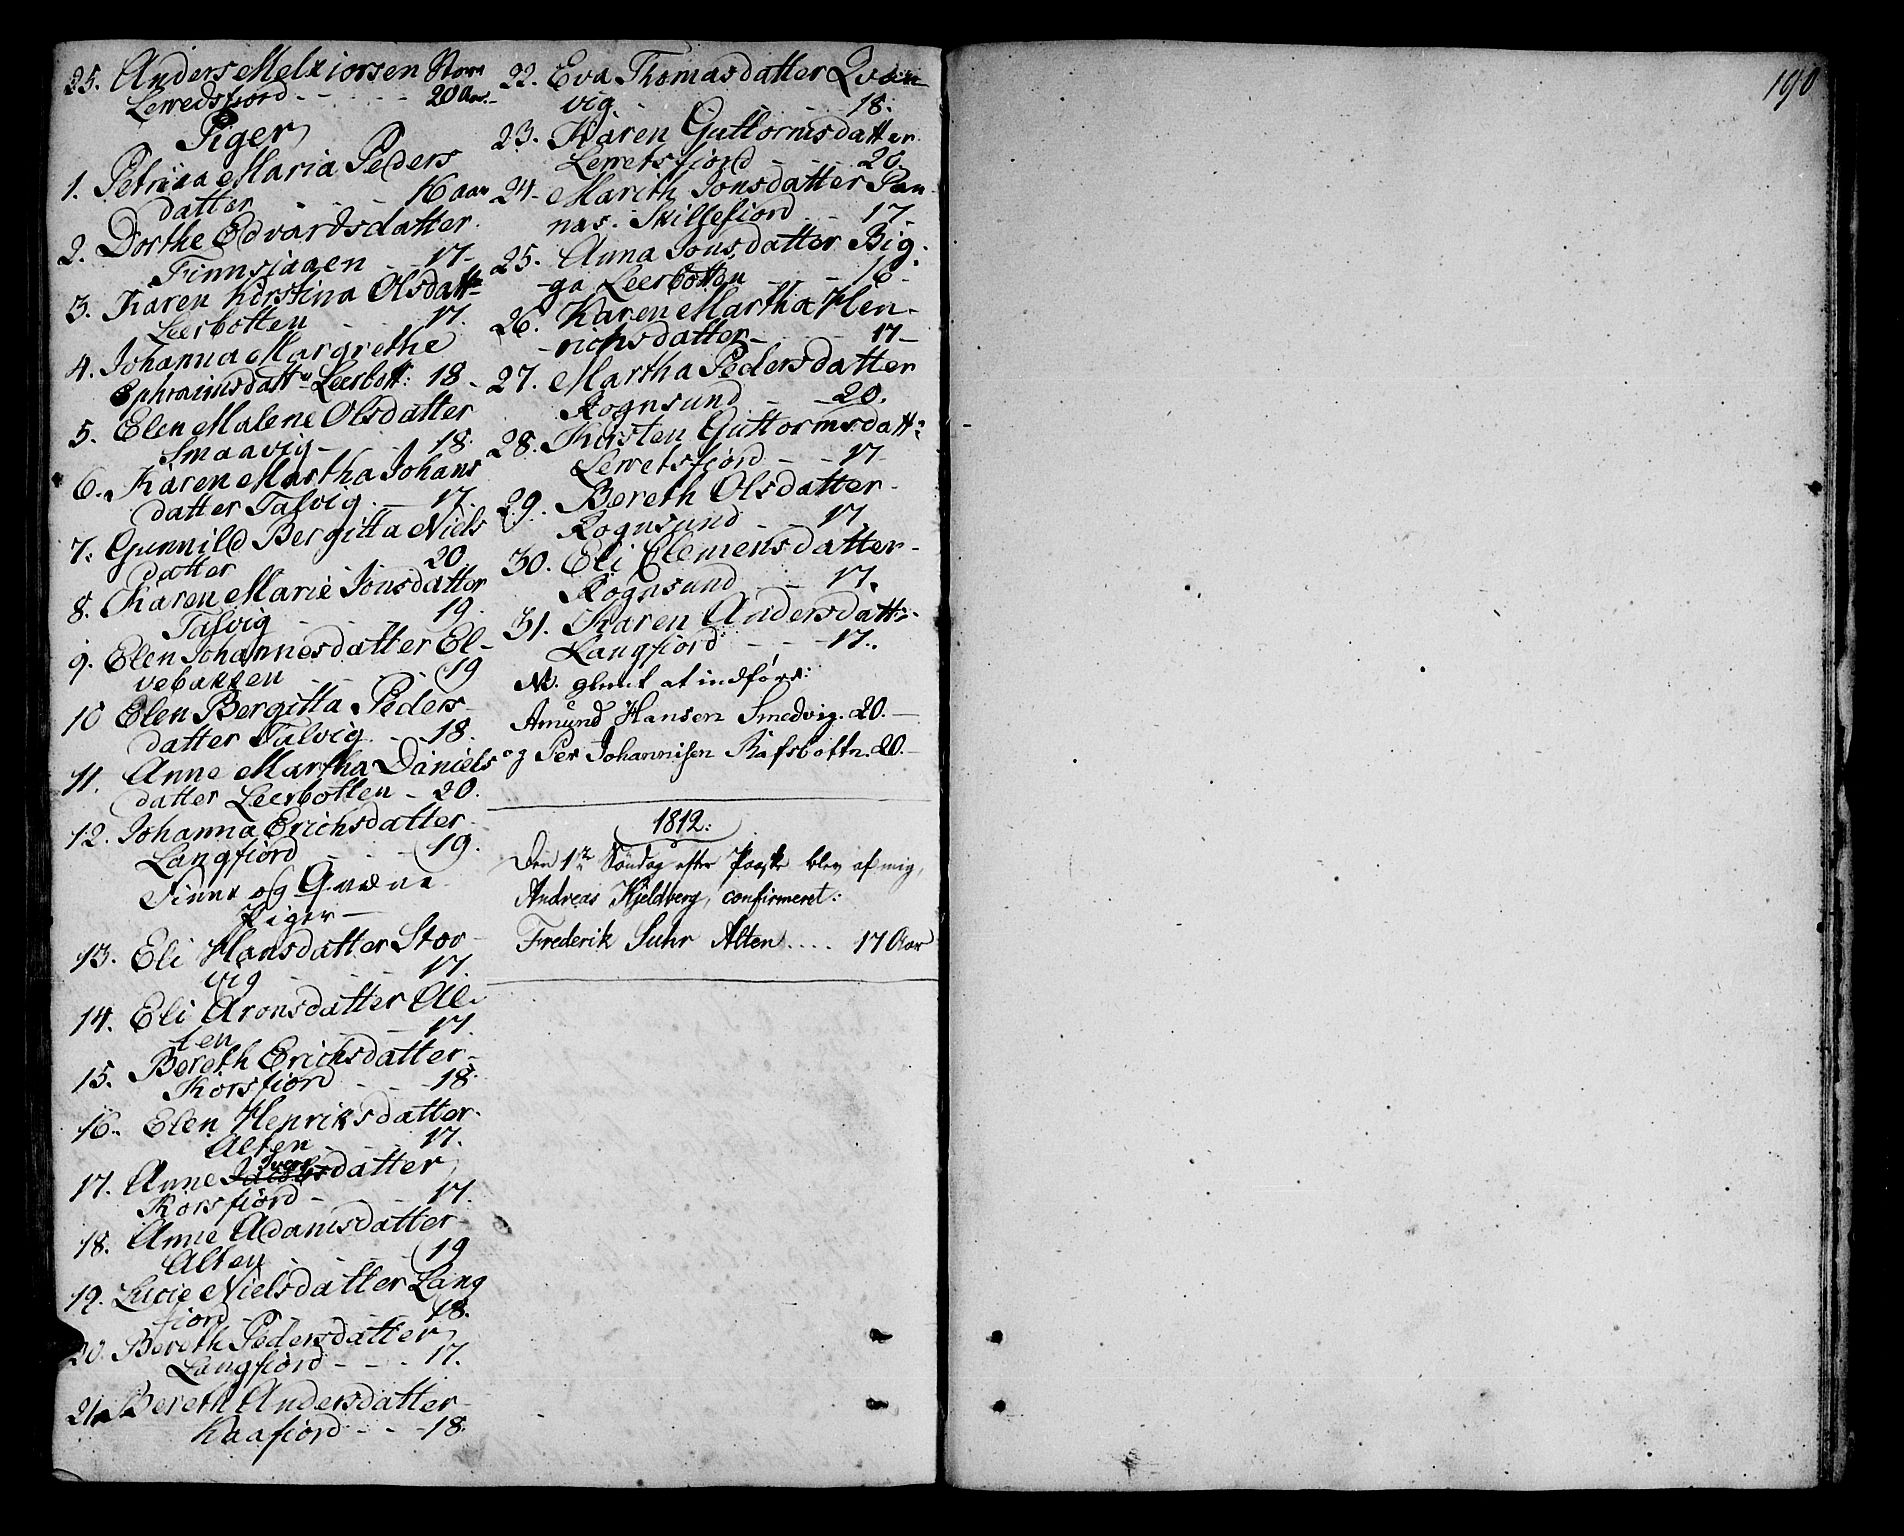 25. Anders Melxiorsen Store
Lerredsfiord - - - 20 Aar.
Piger
1. Petrina Maria Peders
datter 16 aar
2. Dorthe Edvardsdatter
Finnsjaaen - - 17 -
3. Karen Kirstina Olsdatt:
Leerbotten - - 17.
4. Johanna Margrethe
Ephraimsdattr Leerbott: 18 -
5. Elen Malene Olsdatter
Smaavig - - 18.
6. Karen Martha Johans
datter Talvig - 17.
7. Gunnild Bergitta Niels
datter 20.
8. Karen Marie Jonsdatter
Talvig - - - 19.
9. Elen Johannesdatter El-
vebakken - - 19
10 Elen Bergitta Peders-
datter Talvig - - 18.
11. Anne Martha Daniels
datter Leerbotten - 20.
12. Johanna Erichsdatter
Langfiord - - - 19.
Finne og Qvæne
Piger -
13. Eli Hansdatter Stor-
vig - - - 17.
14. Eli Aronsdatter Al-
ten - - - 17.
15. Bereth Erichsdatter
Korsfiord - - - 18.
16. Elen Henriksdatter
Alten - - - 17.
17. Anne Iversdatter
Korsfiord - - - 17.
18. Anne Adamsdatter
Alten - - - 19
19. Lucie Nielsdatter Lang
fiord - - - 18.
20. Bereth Pedersdatter
Langfiord - - - 17.
21. Bereth Andersdatter
Kaafiord - - - 18.
22. Eva Thomasdatter Qvæn
vig - - - 18.
23. Karen Guttormsdatter
Lerretsfiord - - - 20.
24. Marith Jonsdatter Pan-
nas. Skillefiord - - 17 -
25. Anna Jonsdatter Big-
ga Leerbotten - - 16 -
26. Karen Martha Hen-
richsdatter - - - 17 -
27. Martha Pedersdatter
Rognsund - - 20.
28. Kirsten Guttormsdatt:
Lerretsfiord - - 17
29. Bereth Olsdatter
Rognsund - - 17
30. Eli Clemensdatter
Rognsund - - 17.
31. Karen Andersdatt:
Langfiord - - - 17.
Nb. glemt at indføre:
Amund Hansen Smedvig. 20. -
og Per Johannisen Rafsbottn. 20. -
1812:
Den 1te Søndag efter Paaske blev af mig,
Andreas Kjeldberg, confirmeret:
Frederik Suhr Alten .... 17 Aar
190